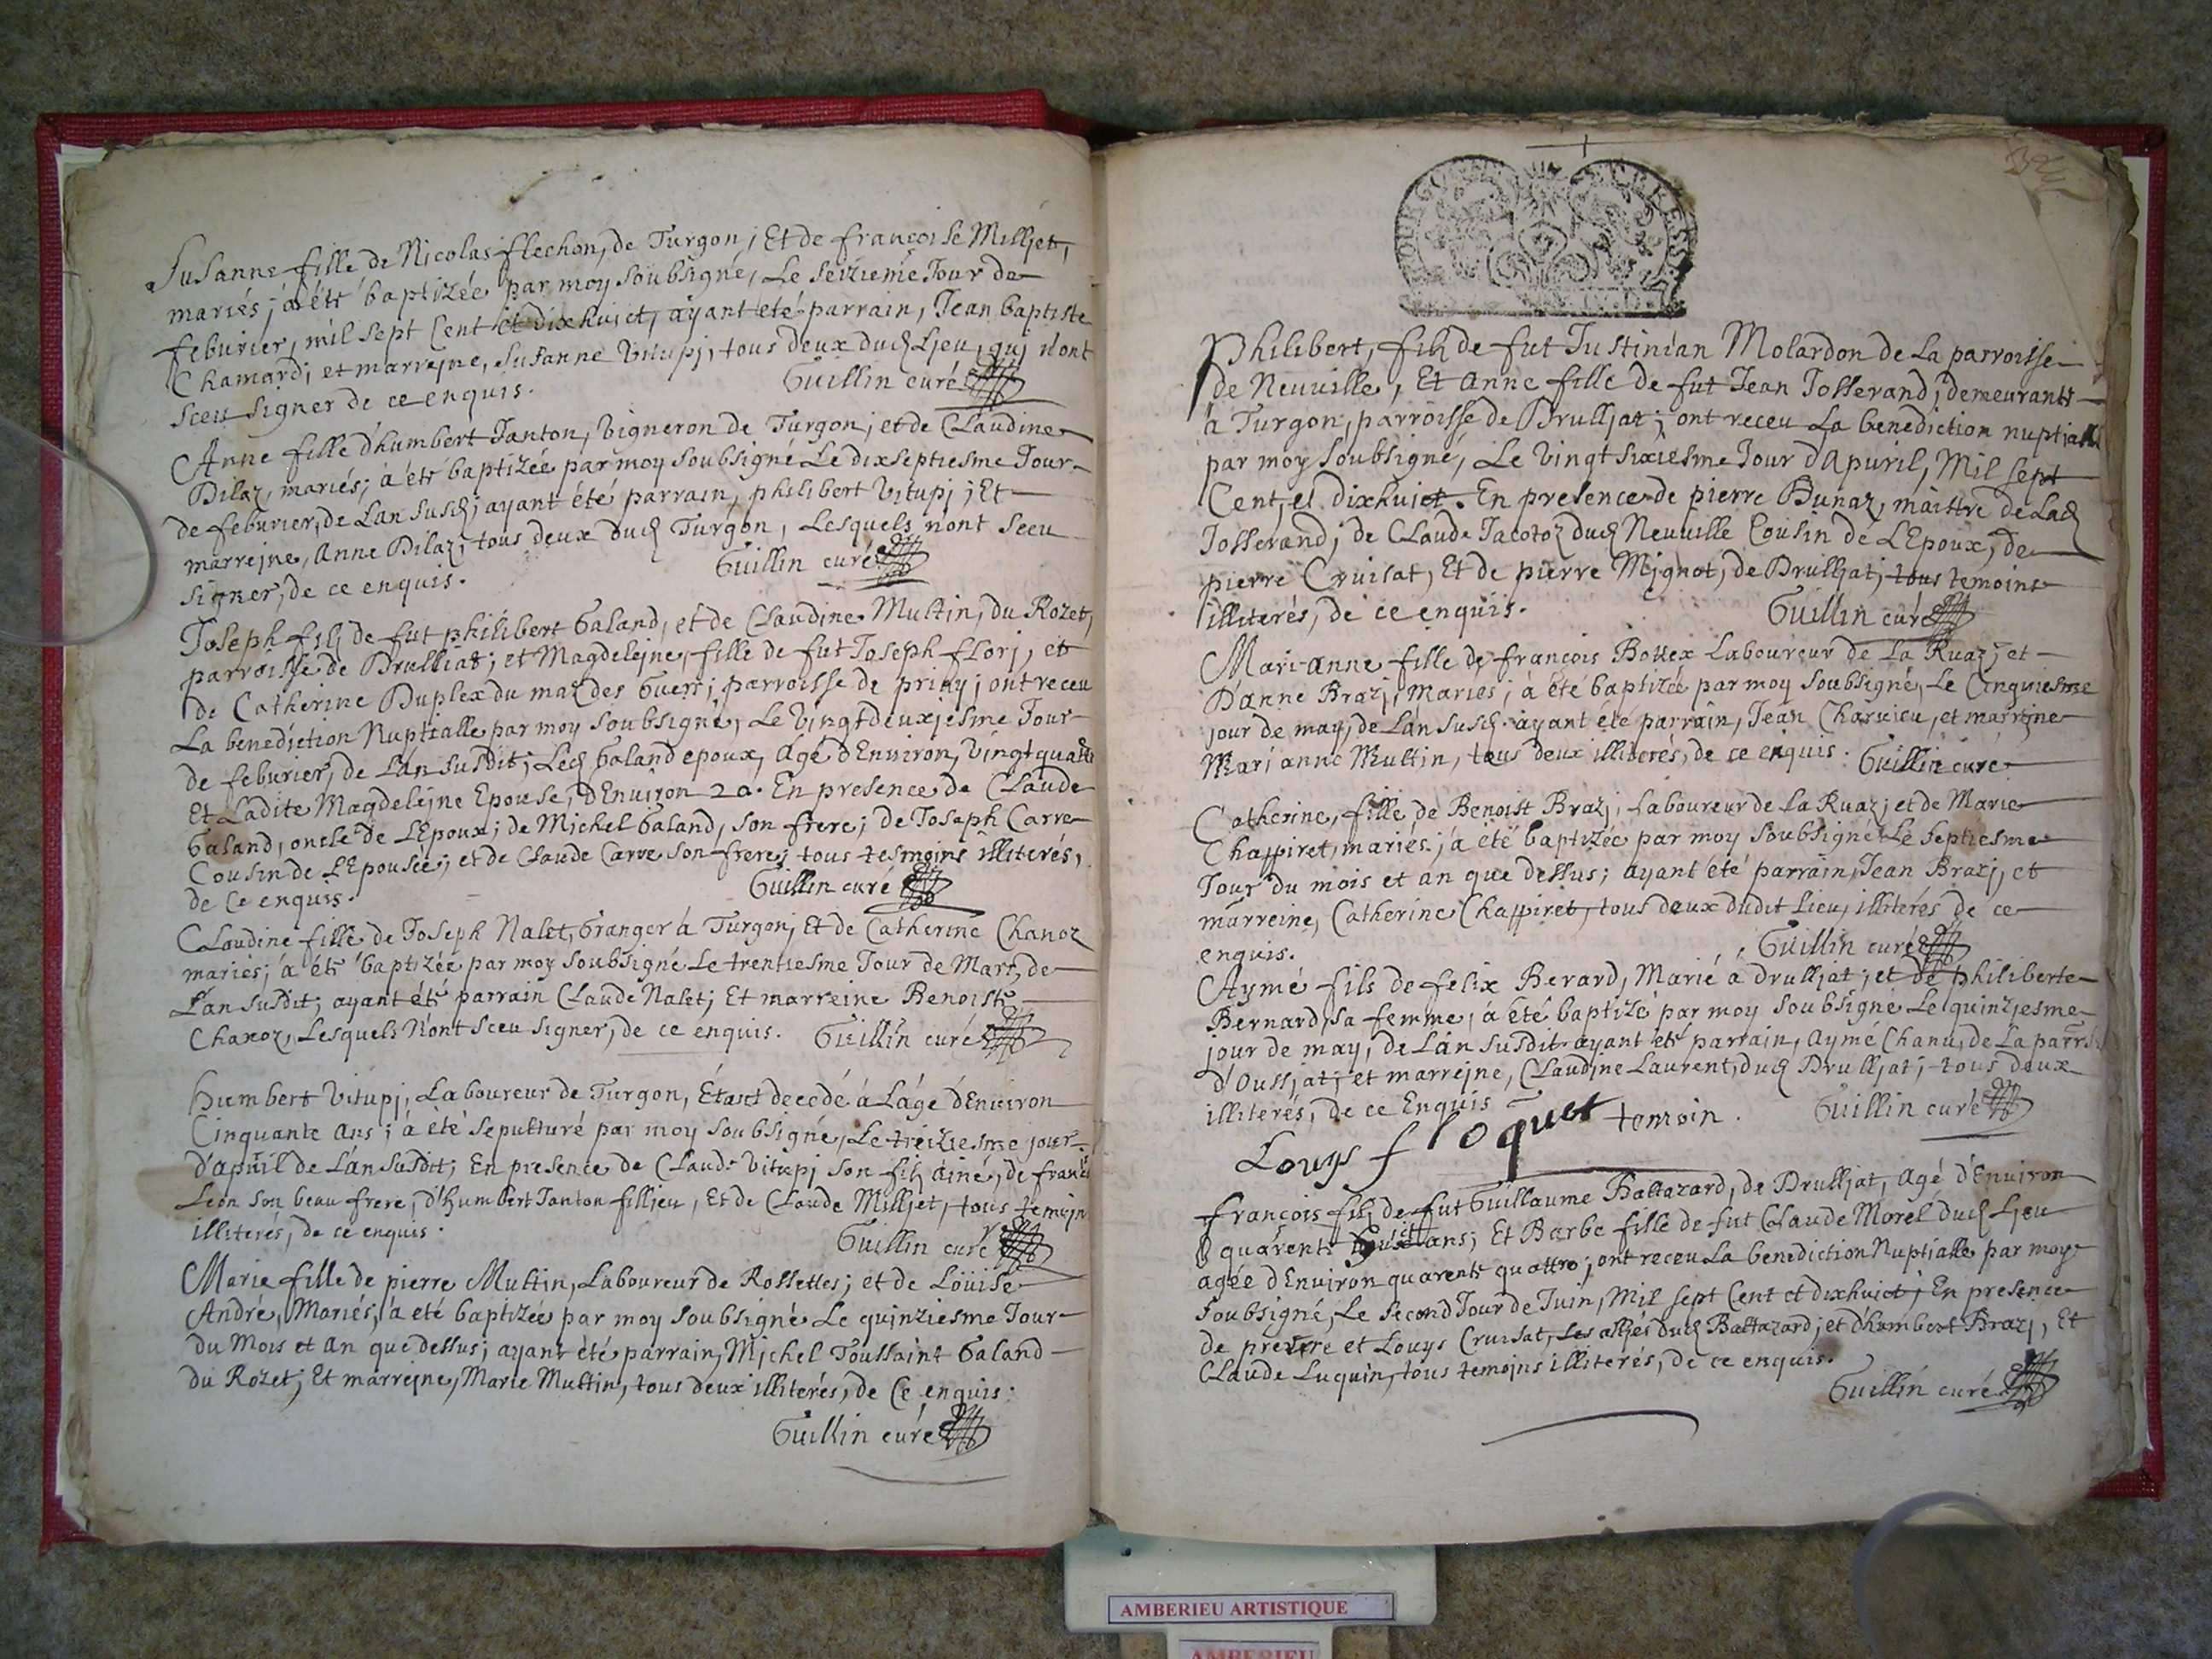 Susanne fille de Nicolas flechon, de Turgon; Et de françoise Milljet,
mariés; à été baptizée par moy soubsigné, Le seizieme Jour de
feburier, mil sept Cent et dixhuict, ayant été parrain, Jean baptiste
Chamard; et marrejne, Susanne Vitupj, tous deux dud Ljeu, quj n'ont
sceu signer de ce enquis. Guillin curé
Anne fille d'humbert Janton, Vigneron de Turgon; et de Claudine
Dilaz, mariés; à été baptizée par moy soubsigné Le dixseptiesme Jour
de feburier, de L'an susd; ayant été parrain, philibert Vitupj; Et
marrejne, Anne Dilaz, tous deux dud Turgon, Lesquels n'ont sceu
signer, de ce enquis. Guillin curé
Joseph fils de fut philibert Galand, et de Claudine Multin, du Rozet,
parroisse de Drulliat; et Magdelejne, fille de fut Joseph fLorj, et
de Catherine Duplex du maz des Guers; parroisse de priay; ont receu
La benediction Nuptialle par moy soubsigné, Le Vingtdeuxjesme Jour
de feburier, de L'an susdit; Led Galand epoux, agé d'Environ, Vingtquattre
Et Ladite Magdelejne Epouse, d'Environ 20. En presence de Claude
Galand, oncle de L'Epoux; de Michel Galand, son frere; de Joseph Carre
Cousin de L'Epousée; et de Claude Carre son frere; tous tesmoins illiterés,
de Ce enquis. Guillin curé
Claudine fille de Joseph Nalet, Granger à Turgon; Et de Catherine Chanoz
mariés; à été baptizée par moy soubsigné Le trentiesme Jour de Mart, de
L'an susdit; ayant été parrain Claude Nalet; Et marreine Benoiste
Chanoz, Lesquels N'ont sceu signer, de ce enquis. Guillin curé
Humbert Vitupj, Laboureur de Turgon, Étant decedé à L'agé d'Environ
Cinquante ans; à été sepulturé par moy soubsigné, Le treiziesme jour
d'apuril de L'an susdit; En presence de Claude Vitupj son fils ainé, de francois
Leon son beau frere, d'humbert Janton filljeu, Et de Claude Milljet, tous temojn
illiterés, de ce enquis. Guillin curé
Marie fille de pierre Multin, Laboureur de Rossettes; et de Loüise
André, Mariés, à eté baptizée par moy soubsigné Le quinziesme Jour
du Mois et an que dessus; ayant été parrain, Mjchel Toussaint Galand
du Rozet; Et marrejne, Marie Multin, tous deux illiterés, de Ce enquis.
Guillin curé
Philibert, fils de fut Justinian Molardon de La parroisse
de Neuville, Et Anne fille de fut Jean Josserand; demeurants
à Turgon, parroisse de Drulljat; ont receu La benediction nuptialle
par moy soubsigné, Le Vingt sixiesme Jour d'Apuril, Mil sept
Cent, et dixhuict. En presence de pierre Dunaz, maittre de Lad
Josserand; de Claude Jacotoz dud Neuville Cousin de L'Epoux, de
pierre Cruisat, Et de pierre Mignot, de Drulljat; tous temoins
illiterés, de ce enquis. Guillin curé
Mari-anne fille de francois Bottex Laboureur de La Ruaz, et
D'anne Brazj, Mariés; à été baptizée par moy soubsigné, Le Cinquiesme
jour de may, de L'an susd. ayant été parrain, Jean Charuieu, et marrejne
Mari anne Multin, tous deux illiterés, de ce enquis. Guillin curé
Catherine, fille de Benoist Brazj, Laboureur de La Ruaz; et de Marie
Chappiret, mariés; à été baptizée par moy soubsigné Le septiesme
Jour du mois et an que dessus; ayant été parrain, Jean Brazj, et
marreine, Catherine Chappiret, tous deux dudit Lieu, illiterés de ce
enquis. Guillin curé
Aymé fils de felix Berard, Marié à drulljat; et de philiberte
Bernard, sa femme, à été baptizé par moy soubsigné Le quinzjesme
jour de may, de L'an susdit ayant été parrain, Aymé Chanu, de La parr
d'Oussjat; et marrejne, Claudine Laurent, dud Drulljat; tous deux
illiterés, de ce Enquis Guillin curé
Louys froquet temoin.
françois fils de fut Guillaume Baltazard, de Drulljat, agé d'Environ
quarente huict ans; Et Barbe fille de fut Claude Morel dud Ljeu
agée d'Environ quarente quattre; ont receu La benediction Nuptialle par moy
soubsigné, Le second Jour de Juin, Mil sept Cent et dixhuict; En presence
de pierre et Louys Cruisat, Les alljés dud Baltazard; et d'humbert Brazj, Et
Claude Luquin, tous temoins illiterés, de ce enquis.
Guillin curé
AMBERIEU ARTISTIQUE
AMBERIEU